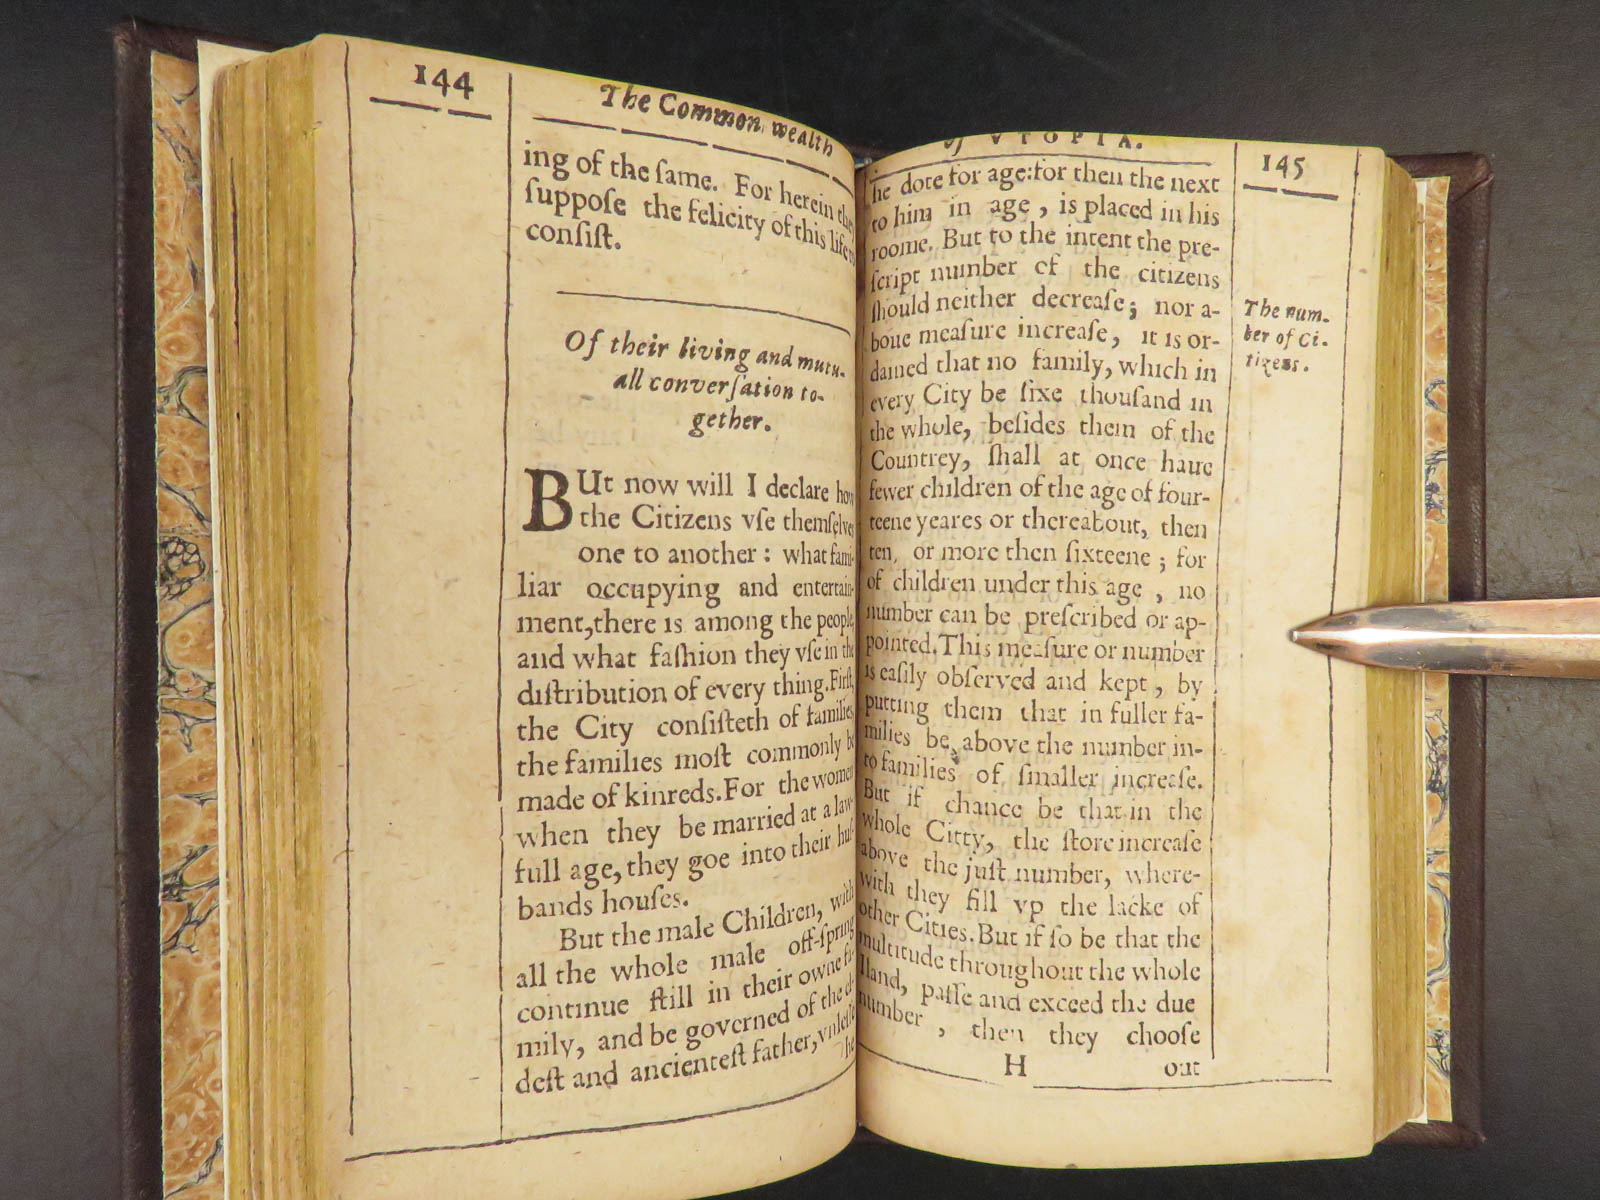 144
The Common wealth
ing of the ſame. For herein they
ſuppoſe the felicity of this life to
conſiſt.
Of their living and mutu-
all converſation to-
gether.
BUt now will I declare how
the Citizens vſe themſelves
one to another: what fami-
liar occupying and entertain-
ment, there is among the people,
and what faſhion they vſe in the
diſtribution of every thing. Firſt,
the City conſiſteth of families,
the families moſt commonly be
made of kinreds. For the women
when they be married at a law-
full age, they goe into their huſ-
bands houſes.
But the male Children, with
all the whole male off-ſpring
continue ſtill in their owne fa-
mily, and be governed of the el-
deſt and ancienteſt father, vnleſſe
he
of VTOPIA.
145
he dote for age: for then the next
to him in age, is placed in his
roome. But to the intent the pre-
ſcript number of the citizens
ſhould neither decreaſe; nor a-
boue meaſure increaſe, it is or-
dained that no family, which in
every City be ſixe thouſand in
the whole, beſides them of the
Countrey, ſhall at once haue
fewer children of the age of four-
teene yeares or thereabout, then
ten, or more then ſixteene; for
of children under this age, no
number can be preſcribed or ap-
pointed. This meaſure or number
is eaſily obſerved and kept, by
putting them that in fuller fa-
milies be above the number in-
to families of ſmaller increaſe.
But if chance be that in the
whole Citty, the ſtore increaſe
above the juſt number, where-
with they fill vp the lacke of
other Cities. But if ſo be that the
multitude throughout the whole
Iland, paſſe and exceed the due
number, then they chooſe
H
out
The num-
ber of Ci-
tizens.